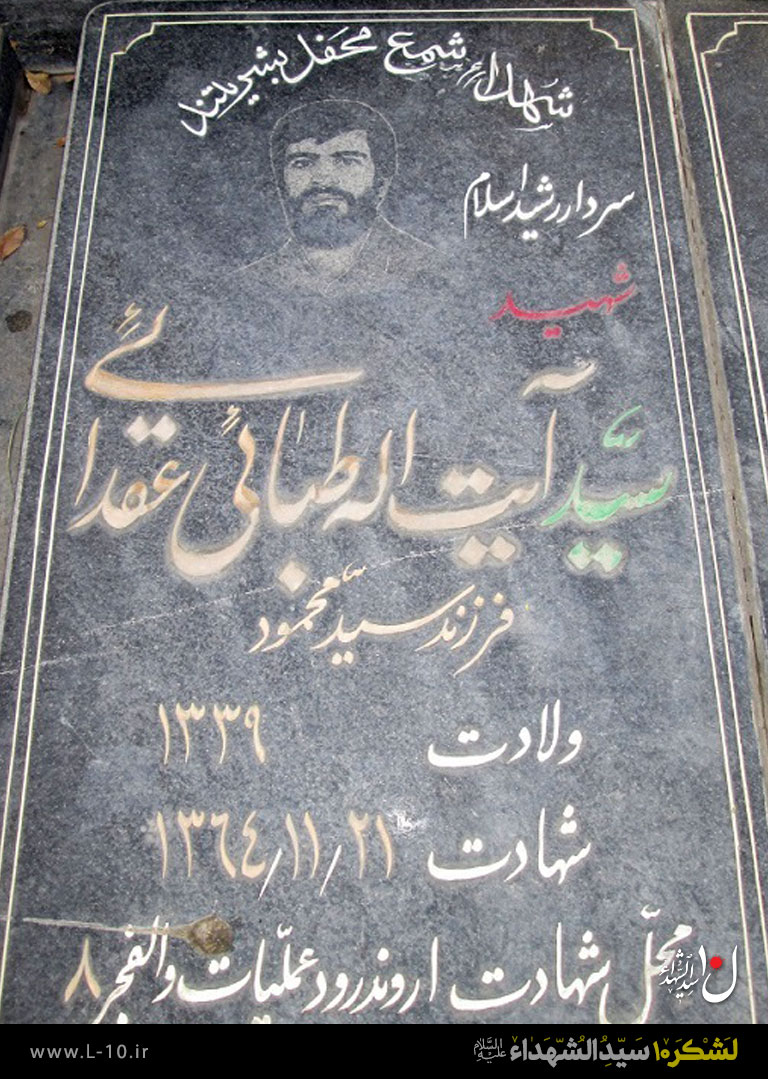 شهداء شمع محفل بشریتند
سردار رشید اسلام
شهید
سیّد آیت اله طبائی عقدائی
فرزند سیّد محمود
ولادت ۱۳۳۹
شهادت ۱۳۶۴/۱۱/۲۱
محلّ شهادت اروندرود عملیّات والفجر ۸
ل۱۰ سیدالشهداء
www.L-10.ir
لَشْکَر۱۰ سَیِّدُالشُّهَداء عَلَیْهِ السَّلام